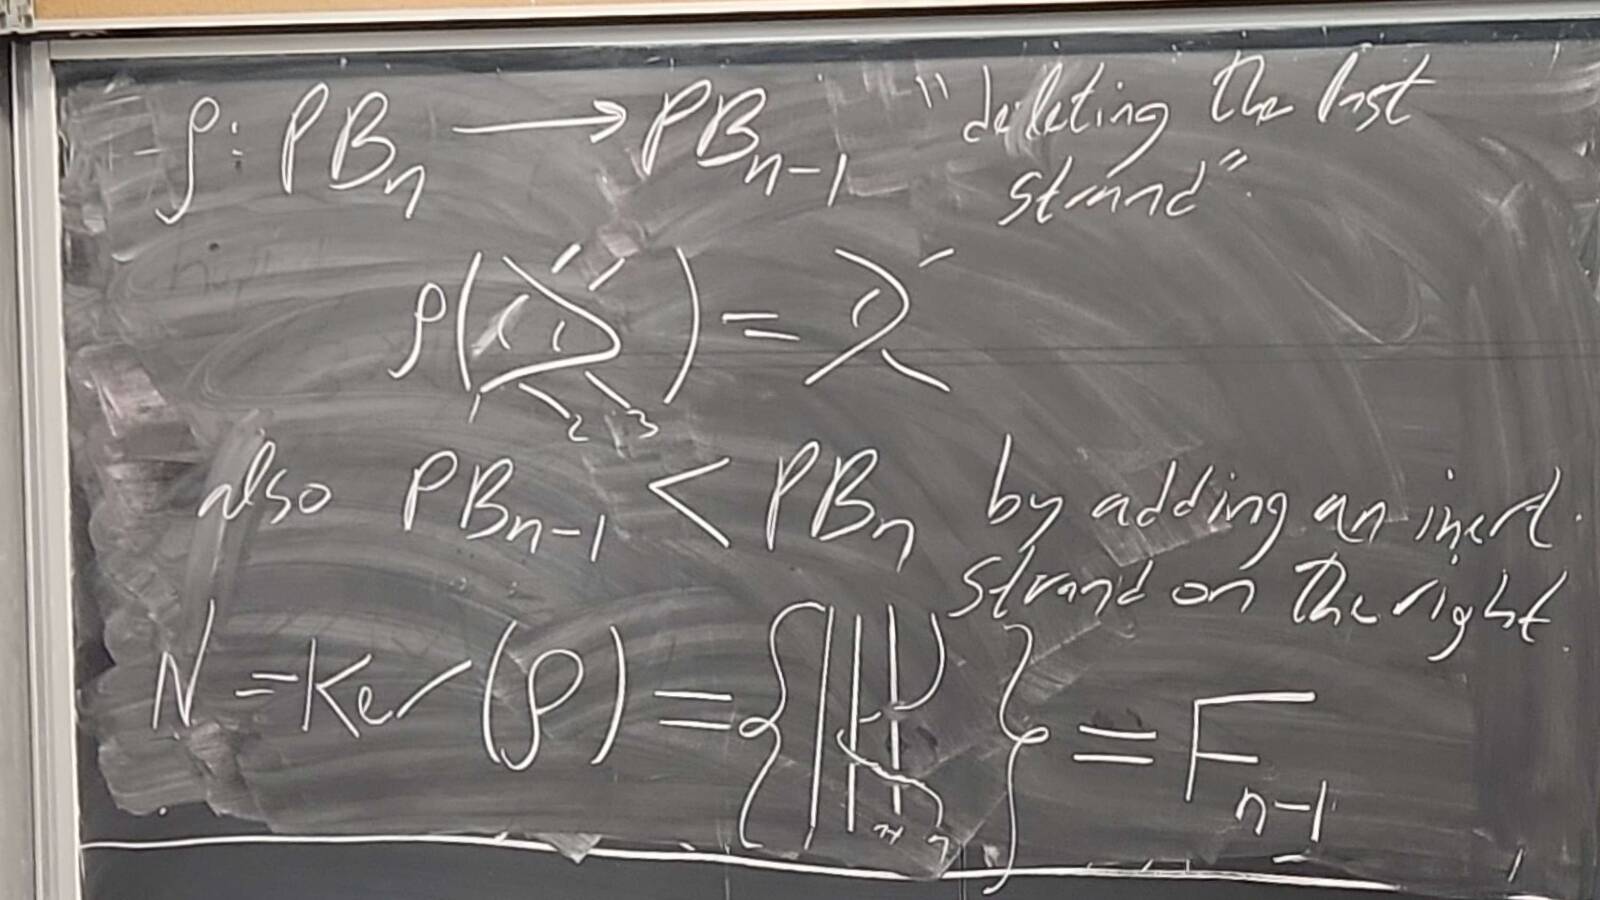 ρ: PBₙ ⟶ PBₙ₋₁ "deleting the last
strand".
ρ( ) =
1 2 3
also PBₙ₋₁ < PBₙ by adding an inert
strand on the right.
N = Ker(ρ) = { } = Fₙ₋₁
n